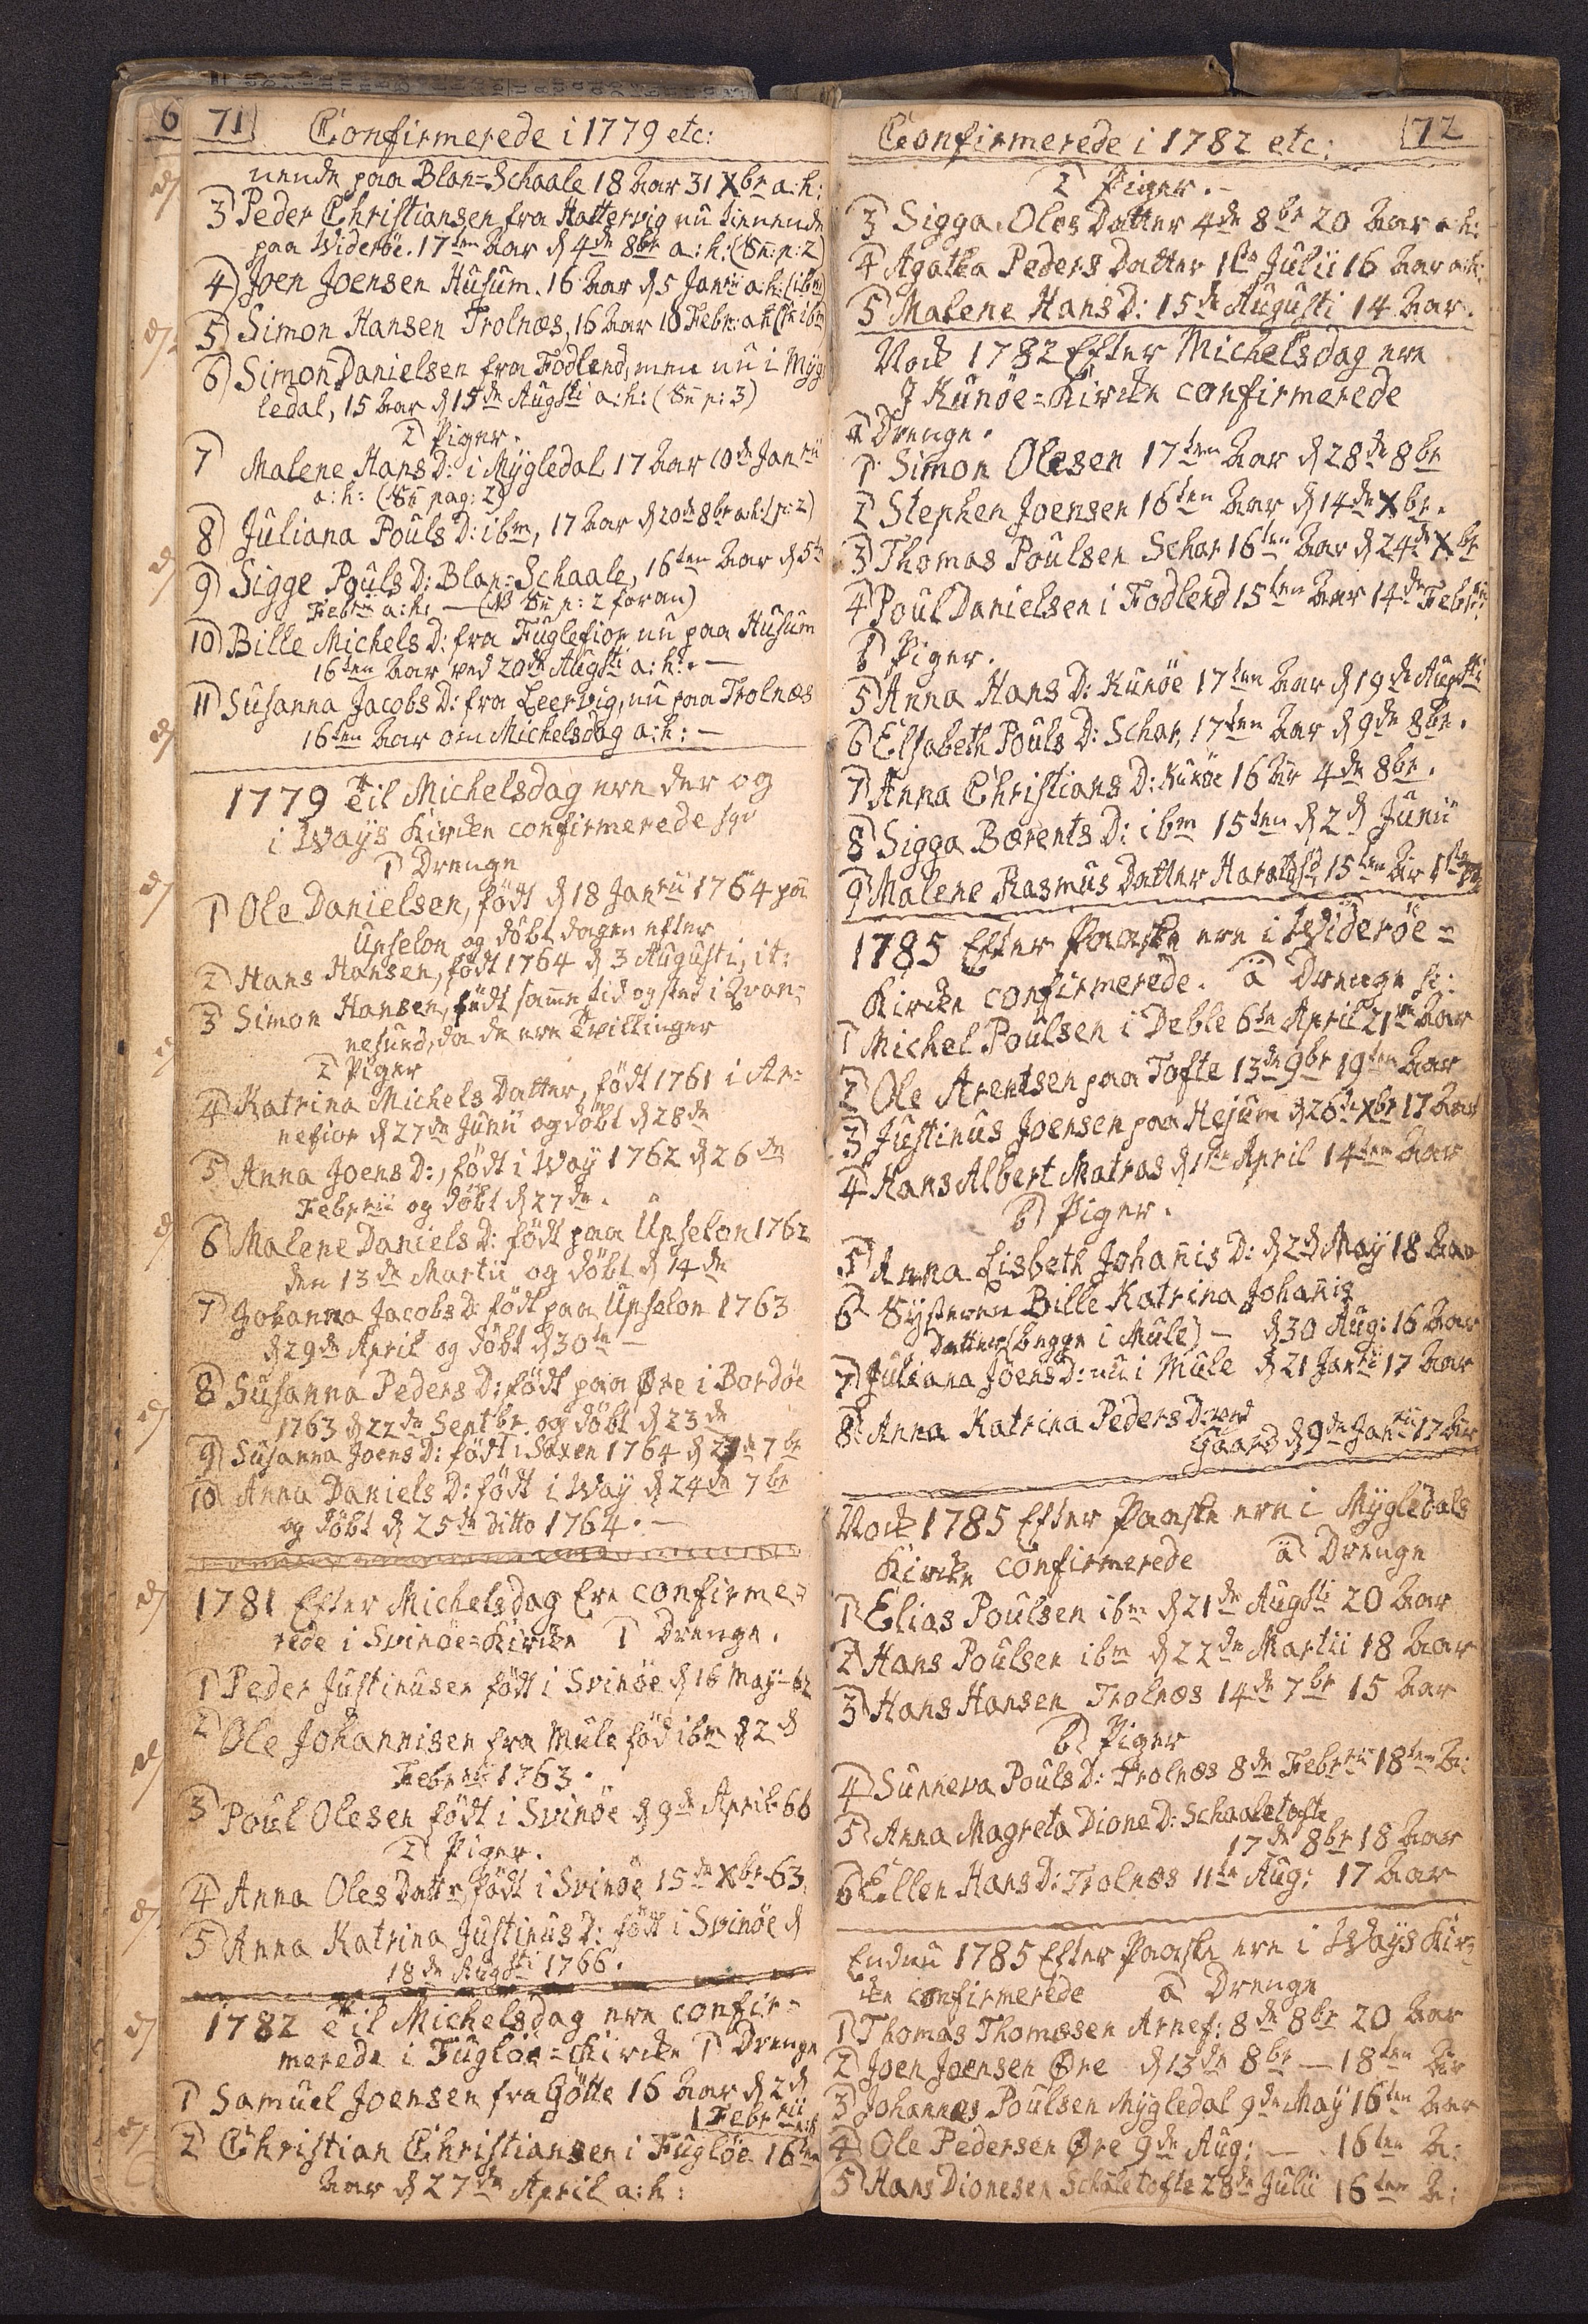 71 Confirmerede i 1779 etc:
nende paa Blan=Schaale 18 Aar 31 Xbr a:h:
3 Peder Christiansen fra Hattervig nu tienende
paa Wideröe. 17ten Aar d 4de 8br a:h: (Su: p: 2)
4) Joen Joensen Husum. 16 Aar d 5 Janrii a:h: (ibm)
5) Simon Hansen Trolnæs, 16 Aar 10 Febr: a:h
6) Simon Danielsen fra Fodlend, men nu i Myg
ledal, 15 Aar d 15de Augsti a:h: (Su p: 3)
2 Piger.
7 Malene Hans D: i Mÿgledal 17 Aar 10de Janrii
a:h: (Su pag: 2)
8) Juliana Pouls D: ibm, 17 Aar d 20de 8br a:h: (p: 2)
9) Sigge Pouls D: Blan=Schaale, 16ten Aar d 5te
Febrii a:h: — (NB Su p: 2 foran)
10) Bille Michels D: fra Fuglefior nu paa Husum
16ten Aar ved 20de Augsti a:h: —
11 Susanna Jacobs D: fra Leervig, nu paa Trolnæs
16ten Aar om Michelsdag a:h: —
1779 Til Michelsdag ere der og
i Waÿs Kircken confirmerede
1 Drenge
1 Ole Danielsen, födt d 18 Janrii 1764 paa
Unselon og döbt dagen efter
2 Hans Hansen, födt 1764 d 3 Augusti, it:
3 Simon Hansen, födt samme tid og sted i Qvan=
nesund, da de ere Tvillinger
2 Piger
4 Katrina Michels Datter, födt 1761 i Ar=
nefior d 27de Junii og döbt d 28de
5 Anna Joens D:, födt i Waÿ 1762 d 26de
Febrrii og döbt d 27de.
6 Malene Daniels D: födt paa Unselon 1762
den 13de Martii og döbt d 14de
7 Johanna Jacobs D: födt paa Unselon 1763
d 29de April og döbt d 30te —
8 Susanna Peders D: födt paa Øre i Bordöe
1763 d 22de Septbr og döbt d 23de
9) Susanna Joens D: födt i Saxen 1764 d 7br
10 Anna Daniels D: födt i Waÿ d 24de 7br
og döbt d 25te ditto 1764. —
1781 Efter Michelsdag Ere confirme=
rede i Svinöe=Kircke 1 Drenge.
1 Peder Justinusen födt i Svinöe d 16 Maÿ 62
2 Ole Johannisen fra Mule föd ibm d 2d
Febrrii 1763.
3 Poul Olesen födt i Svinöe d 9de April 66
2 Piger.
4 Anna Oles Datter födt i Svinöe 15de Xbr 63
5 Anna Katrina Justinus D: födt i Svinöe d
18de Augsti 1766.
1782 Til Michelsdag ere confir=
merede i Fuglöe=Kircke 1 Drenge
1 Samuel Joensen fra Götte 16 Aar d 2d
Febrrii a:h
2 Christian Christiansen i Fuglöe 16ten
Aar d 27de April a:h:
Confirmerede i 1782 etc: 72
2 Piger. —
3 Sigga Oles Datter 4de 8br 20 Aar a:h:
4 Agatha Peders Datter 1te Julii 16 Aar a:h:
5 Malene Hans D: 15de Augusti 14 Aar.
Nock 1782 Efter Michelsdag ere
I Kunöe=Kircke confirmerede
a Drenge.
1 Simon Olesen 17ten Aar d 28de 8br
2 Stephen Joensen 16ten Aar d 14de Xbr.
3 Thomas Poulsen Schar 16ten Aar d 24de Xbr
4 Poul Danielsen i Fodlend 15ten Aar 14de Febrii
b Piger.
5 Anna Hans D: Kunöe 17ten Aar d 19de Augsti
6 Elsabeth Pouls D: Schar, 17ten Aar d 9de 8br.
7 Anna Christians D: Kunöe 16 Aar 4de 8br.
8 Sigga Bærents D: ibm 15ten d 2d Junii
9 Malene Rasmus Datter Haraldsd 15ten Aar 1te
1785 Efter Paaske ere i Wideröe=
Kircken confirmerede. a Drenge sc:
1 Michel Poulsen i Deble 6te April 21 Aar
2 Ole Arentsen paa Tofte 13de 9br 19ten Aar
3 Justinus Joensen paa Hejum d 26de Xbr 17 Aar
4 Hans Albert Matras d 1te April 14ten Aar
b Piger.
5 Anna Lisbeth Johannis D: d 2d May 18 Aar
6 Systeren Bille Katrina Johanis
Datter (begge i Mule) — d 30 Aug: 16 Aar
7 Juliana Joens D: nu i Mule d 21 Janrii 17 Aar
8 Anna Katrina Peders D: ved
Gaard d 9de Janrii 17 Aar
Nock 1785 Efter Paaske ere i Mÿgledals
Kircke confirmerede a Drenge
1 Elias Poulsen ibm d 21de Augsti 20 Aar
2 Hans Poulsen ibm d 22de Martii 18 Aar
3 Hans Hansen Trolnæs 14de 7br 15 Aar
b Piger
4 Sunneva Pouls D: Trolnæs 8de Febrrii 18ten A:
5 Anna Magreta Dione D: Schaaletofte
17de 8br 18 Aar
6 Ellen Hans D: Trolnæs 11te Aug: 17 Aar
Endnu 1785 Efter Paaske ere i Waÿs Kir=
cke confirmerede a Drenge
1 Thomas Thomæsen Arnef: 8de 8br 20 Aar
2 Joen Joensen Øre d 13de 8br — 18ten Aar
3 Johannes Poulsen Mÿgledal 9de May 16ten Aar
4 Ole Pedersen Øre 9de Aug: — 16ten A:
5 Hans Dionesen Schaletofte 28de Julii 16ten A: